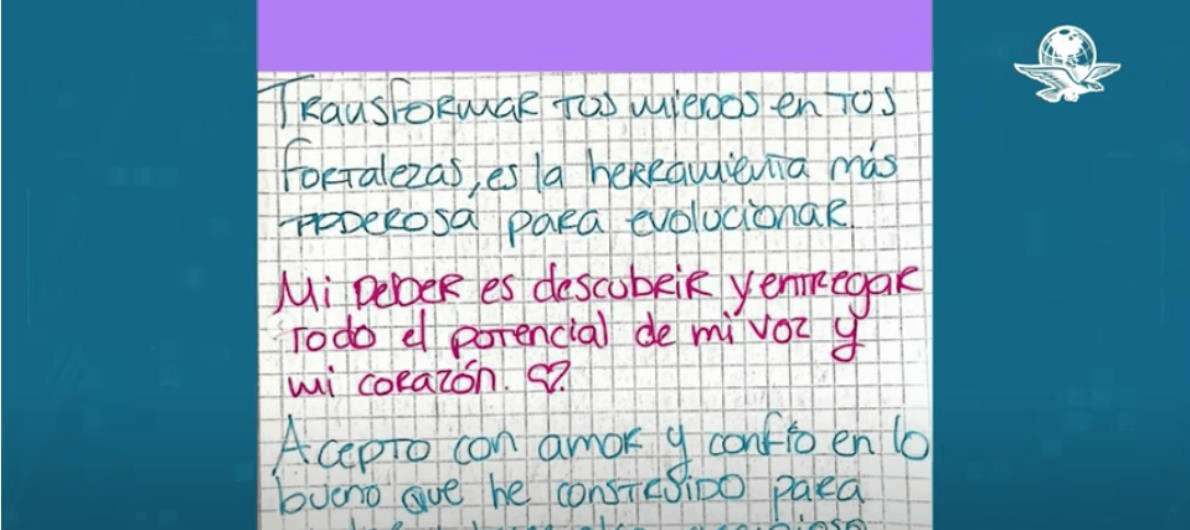 Transformar tus miedos en tus
fortalezas, es la herramienta más
poderosa para evolucionar.
Mi deber es descubrir y entregar
todo el potencial de mi voz y
mi corazón. ♡
Acepto con amor y confío en lo
bueno que he construido para